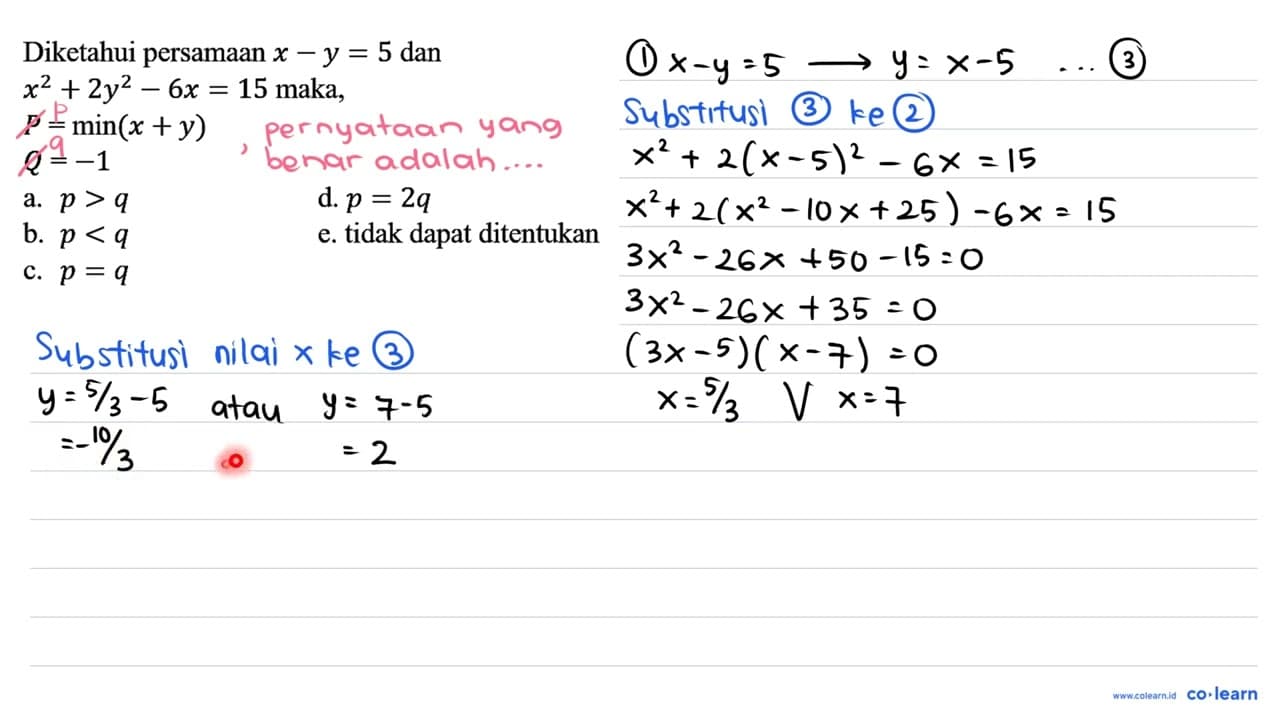 Diketahui persamaan x − y = 5 dan
x² + 2y² − 6x = 15 maka,
p
P = min(x + y)
q
Q = −1
, pernyataan yang
benar adalah....
a. p > q
b. p < q
c. p = q
d. p = 2q
e. tidak dapat ditentukan
Substitusi nilai x ke ③
y = 5/3 − 5 atau y = 7 − 5
= −10/3 = 2
① x − y = 5 ⟶ y = x − 5 ... ③
Substitusi ③ ke ②
x² + 2(x − 5)² − 6x = 15
x² + 2(x² − 10x + 25) − 6x = 15
3x² − 26x + 50 − 15 = 0
3x² − 26x + 35 = 0
(3x − 5)(x − 7) = 0
x = 5/3 V x = 7
www.colearn.id co·learn